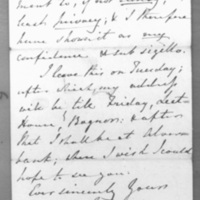 ment to, if not
least privacy; & I therefore
have shown it as my
confidence & sub sigillo.
I leave this on Tuesday;
after which, my address
will be till Friday,
House, Bognor: & after
that I shall be at
bank; where I wish I could
hope to see you.
Ever sincerely Yours